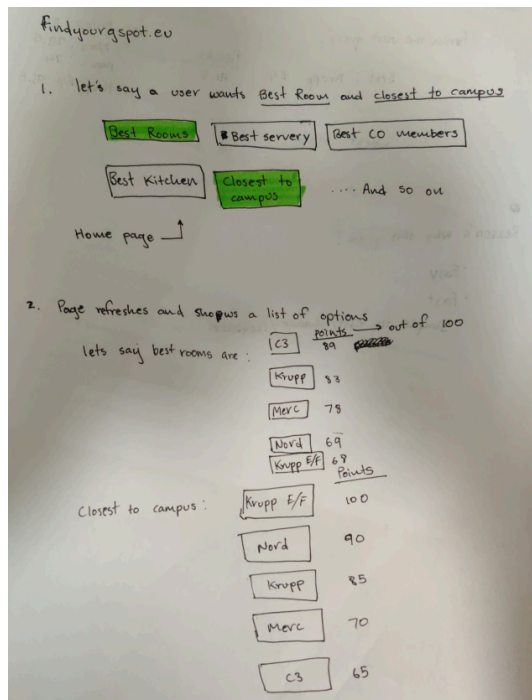 findyourgspot.eu
1. let's say a user wants Best Room and closest to campus
Best Rooms Best servery Best CO members
Best Kitchen Closest to campus .... And so on
Home page
2. Page refreshes and shows a list of options
points → out of 100
lets say best rooms are : C3 89
Krupp 83
Merc 78
Nord 69
Krupp E/F 68
Points
Closest to campus : Krupp E/F 100
Nord 90
Krupp 85
Merc 70
C3 65